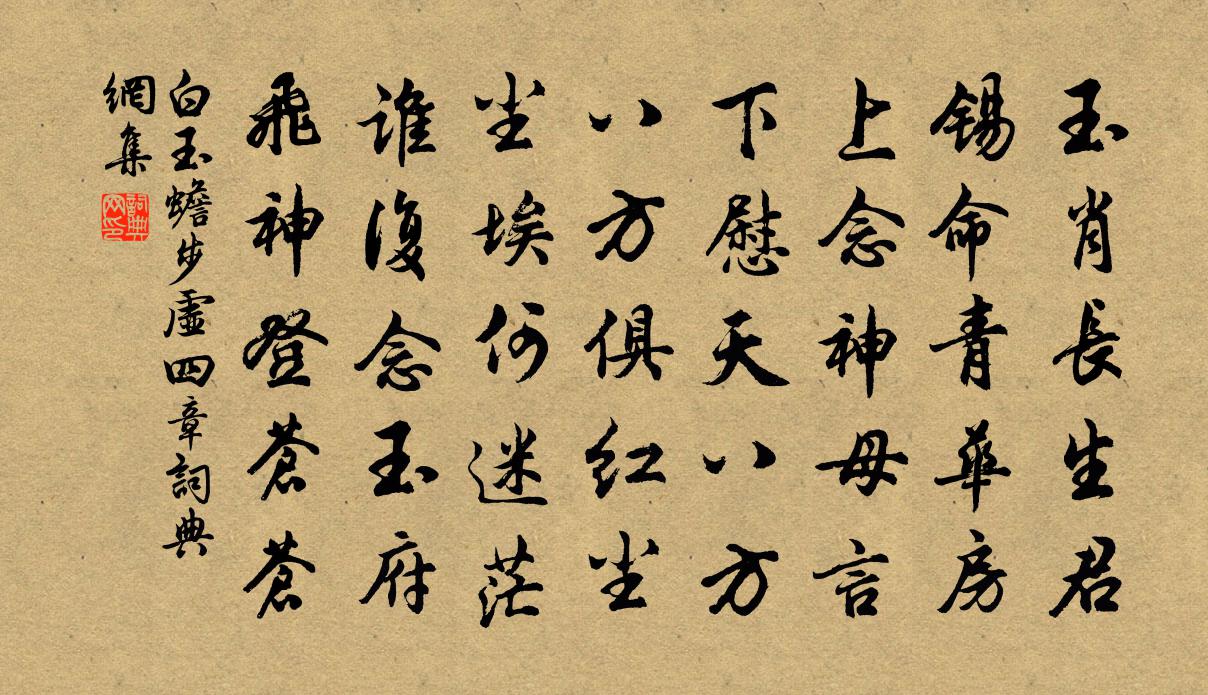 玉肖長生君
錫命青華房
上念神母言
下慰天八方
八方俱红尘
尘埃何迷茫
谁復念玉府
飛神登蒼蒼
白玉蟾步虛四章詞典
網集
詞典网印